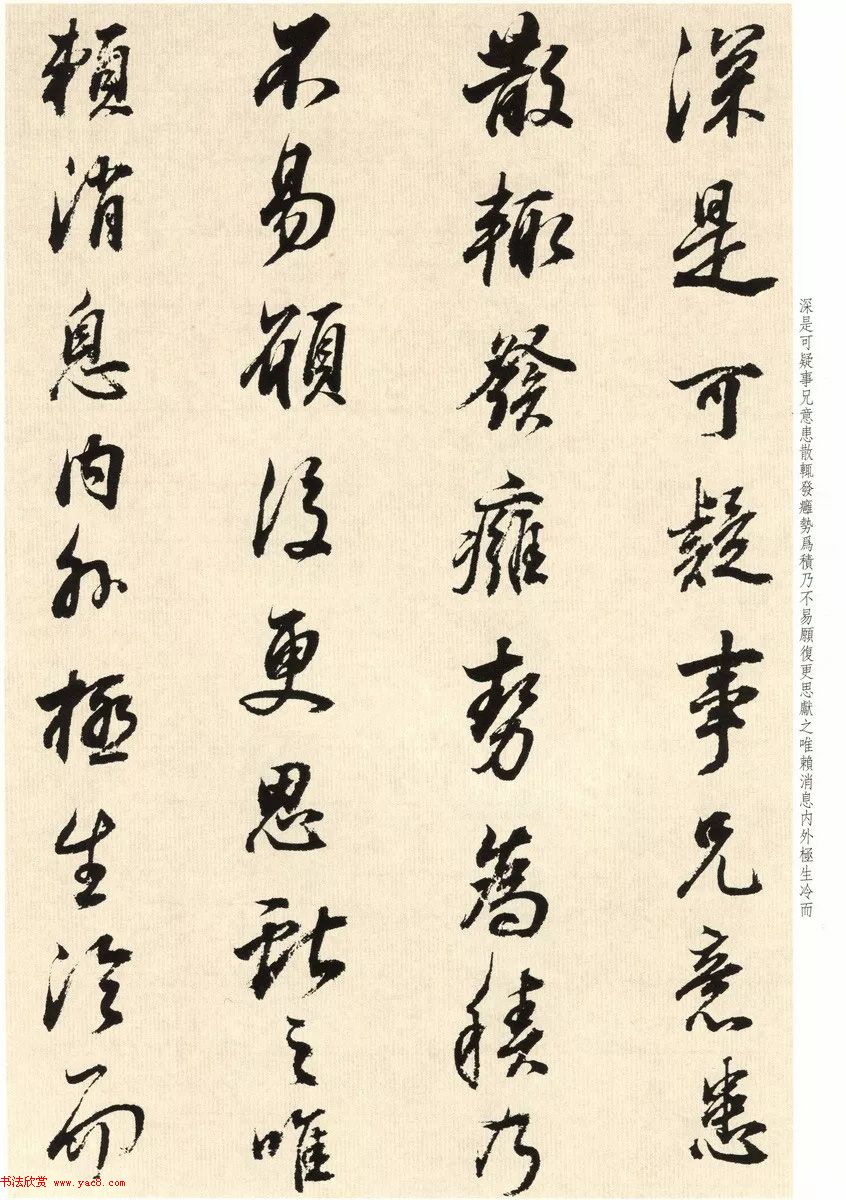 深是可疑事兄意患
散輒發癰勢為積乃
不易願復更思獻之唯
賴消息内外極生冷而
深是可疑事兄意患散輒發癰勢爲積乃不易願復更思獻之唯賴消息内外極生冷而
书法欣赏 www.yac8.com